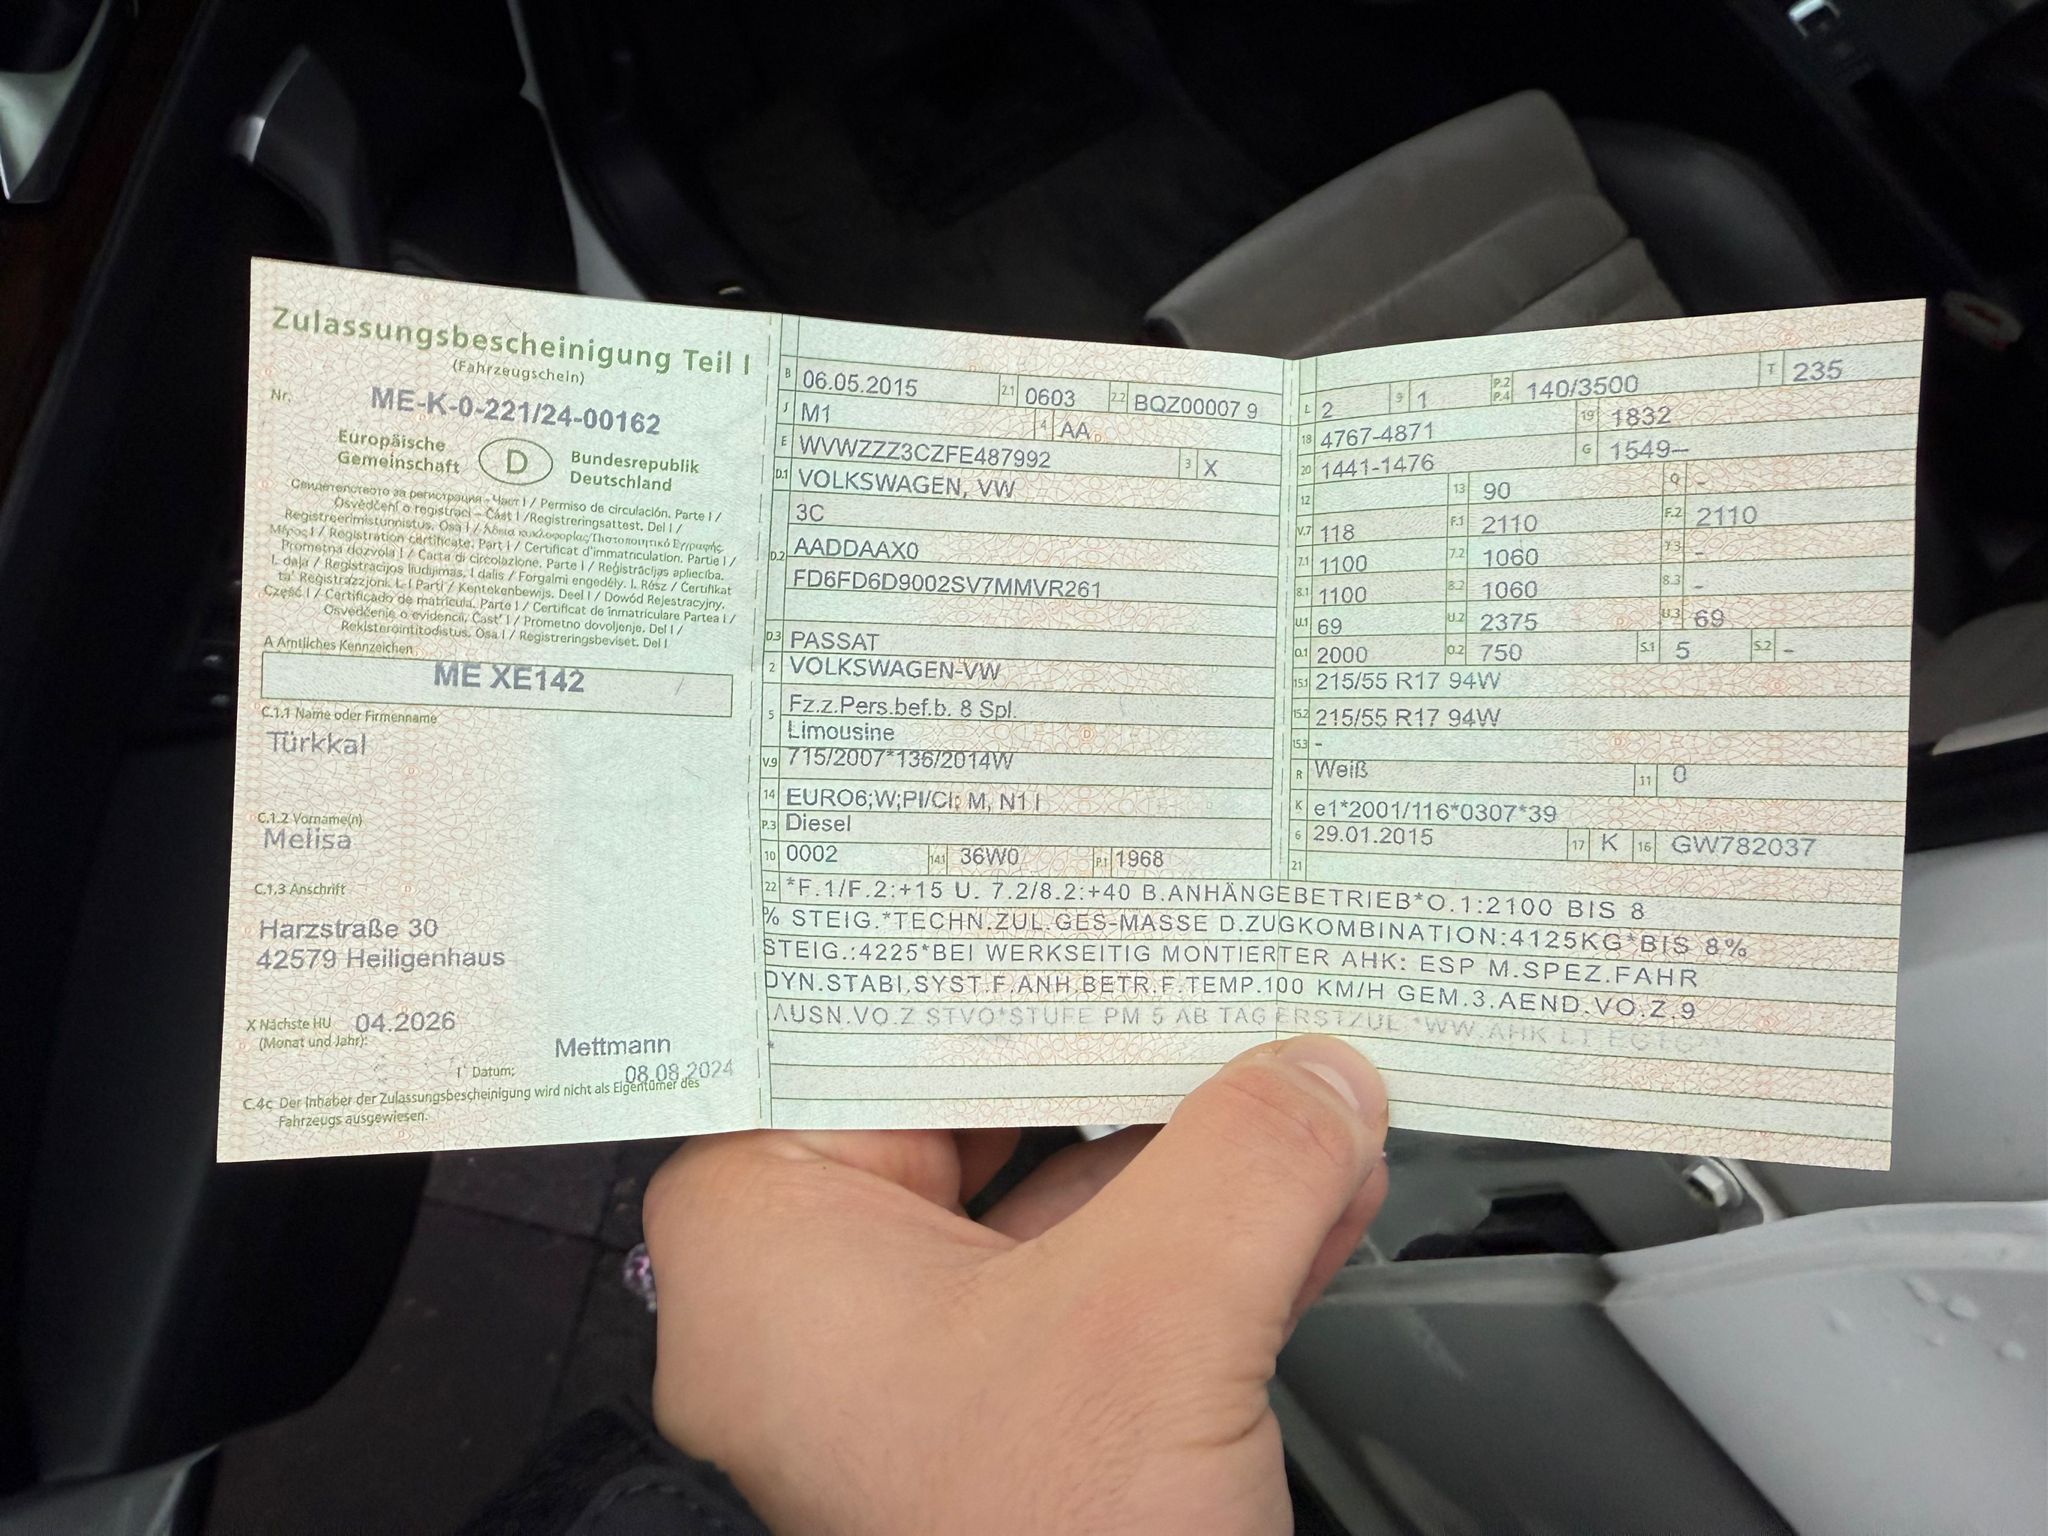 Zulassungsbescheinigung Teil I
(Fahrzeugschein)
Nr. ME-K-0-221/24-00162
Europäische Gemeinschaft D Bundesrepublik Deutschland
Свидетелство за регистрация - Част I / Permiso de circulación. Parte I /
Osvědčení o registraci – Část I / Registreringsattest. Del I /
Registreerimistunnistus. Osa I / Άδεια κυκλοφορίας/Πιστοποιητικό Εγγραφής
Μέρος I / Registration certificate. Part I / Certificat d'immatriculation. Partie I /
Prometna dozvola I / Carta di circolazione. Parte I / Reģistrācijas apliecība.
I. daļa / Registracijos liudijimas. I dalis / Forgalmi engedély. I. Rész / Ċertifikat
ta' Reġistrazzjoni. L-I Parti / Kentekenbewijs. Deel I / Dowód Rejestracyjny.
Część I / Certificado de matrícula. Parte I / Certificat de înmatriculare Partea I /
Osvedčenie o evidencii. Časť I / Prometno dovoljenje. Del I /
Rekisteröintitodistus. Osa I / Registreringsbeviset. Del I
A Amtliches Kennzeichen
ME XE142
C.1.1 Name oder Firmenname
Türkkal
C.1.2 Vorname(n)
Melisa
C.1.3 Anschrift
Harzstraße 30
42579 Heiligenhaus
X Nächste HU 04.2026
(Monat und Jahr):
Mettmann
I Datum: 08.08.2024
C.4c Der Inhaber der Zulassungsbescheinigung wird nicht als Eigentümer des
Fahrzeugs ausgewiesen.
B 06.05.2015 2.1 0603 2.2 BQZ00007 9
J M1 4 AA
E WVWZZZ3CZFE487992 3 X
D.1 VOLKSWAGEN, VW
3C
D.2 AADDAAX0
FD6FD6D9002SV7MMVR261
D.3 PASSAT
2 VOLKSWAGEN-VW
5 Fz.z.Pers.bef.b. 8 Spl.
Limousine
V.9 715/2007*136/2014W
14 EURO6;W;PI/CI; M, N1 I
P.3 Diesel
10 0002 14.1 36W0 P.1 1968
L 2 9 1 P.2 P.4 140/3500 T 235
18 4767-4871 19 1832
20 1441-1476 G 1549–
12 13 90 Q -
V.7 118 F.1 2110 F.2 2110
7.1 1100 7.2 1060 7.3 -
8.1 1100 8.2 1060 8.3 -
U.1 69 U.2 2375 U.3 69
O.1 2000 O.2 750 S.1 5 S.2 -
15.1 215/55 R17 94W
15.2 215/55 R17 94W
15.3 -
R Weiß 11 0
K e1*2001/116*0307*39
6 29.01.2015 17 K 16 GW782037
21
22 *F.1/F.2:+15 U. 7.2/8.2:+40 B.ANHÄNGEBETRIEB*O.1:2100 BIS 8
% STEIG.*TECHN.ZUL.GES-MASSE D.ZUGKOMBINATION:4125KG*BIS 8%
STEIG.:4225*BEI WERKSEITIG MONTIERTER AHK: ESP M.SPEZ.FAHR
DYN.STABI.SYST.F.ANH.BETR.F.TEMP.100 KM/H GEM.3.AEND.VO.Z.9
AUSN.VO.Z STVO*STUFE PM 5 AB TAG ERSTZUL.*WW.AHK LT
*